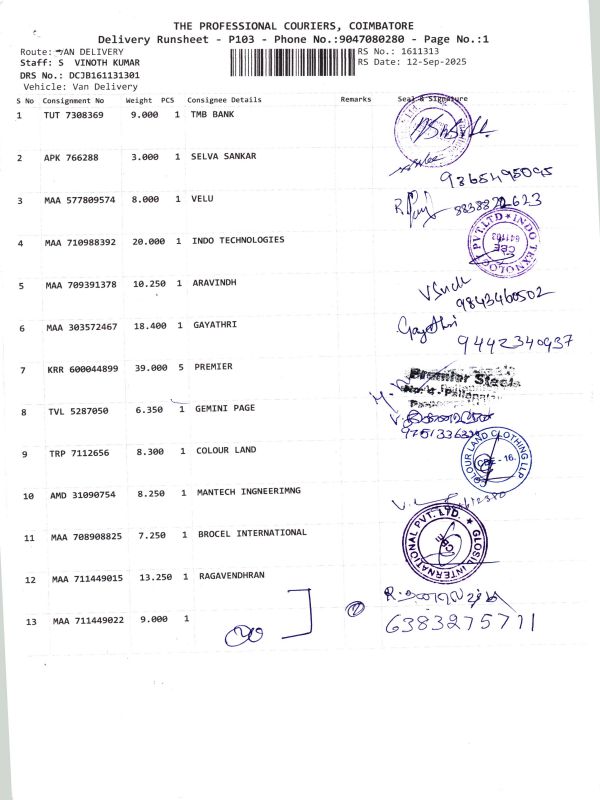 THE PROFESSIONAL COURIERS, COIMBATORE
Delivery Runsheet - P103 - Phone No.:9047080280 - Page No.:1
Route: VAN DELIVERY RS No.: 1611313
Staff: S VINOTH KUMAR RS Date: 12-Sep-2025
DRS No.: DCJB161131301
Vehicle: Van Delivery
S No Consignment No Weight PCS Consignee Details Remarks Seal & Signature
1 TUT 7308369 9.000 1 TMB BANK
2 APK 766288 3.000 1 SELVA SANKAR
9865495095
3 MAA 577809574 8.000 1 VELU
4 MAA 710988392 20.000 1 INDO TECHNOLOGIES
PVT.LTD ★ INDO TEXNOLOGY
CBE
641103
5 MAA 709391378 10.250 1 ARAVINDH
9843460502
6 MAA 303572467 18.400 1 GAYATHRI
Gayathri
9442340937
7 KRR 600044899 39.000 5 PREMIER
Premier Steels
8 TVL 5287050 6.350 1 GEMINI PAGE
9 TRP 7112656 8.300 1 COLOUR LAND
COLOUR LAND CLOTHING LLP
CBE - 16.
10 AMD 31090754 8.250 1 MANTECH INGNEERIMNG
11 MAA 708908825 7.250 1 BROCEL INTERNATIONAL
GLOSIL INTERNATIONAL PVT. LTD. ★
CBE
12 MAA 711449015 13.250 1 RAGAVENDHRAN
13 MAA 711449022 9.000 1
6383275711